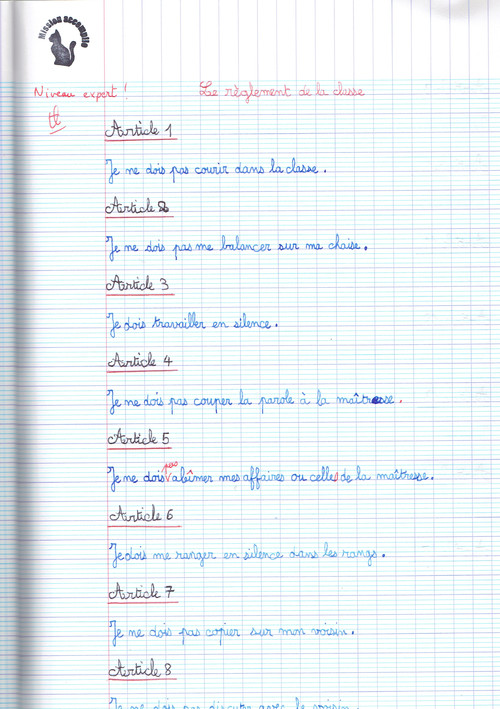 Mission accomplie
Niveau expert !
Le règlement de la classe
Article 1
Je ne dois pas courir dans la classe.
Article 2
Je ne dois pas me balancer sur ma chaise.
Article 3
Je dois travailler en silence.
Article 4
Je ne dois pas couper la parole à la maîtresse.
Article 5
Je ne dois pas abîmer mes affaires ou celles de la maîtresse.
Article 6
Je dois me ranger en silence dans les rangs.
Article 7
Je ne dois pas copier sur mon voisin.
Article 8
Je ne dois pas discuter avec le voisin.